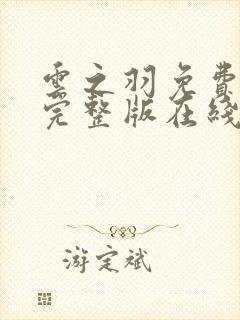 雲之羽免費
完整版在綫
游定斌